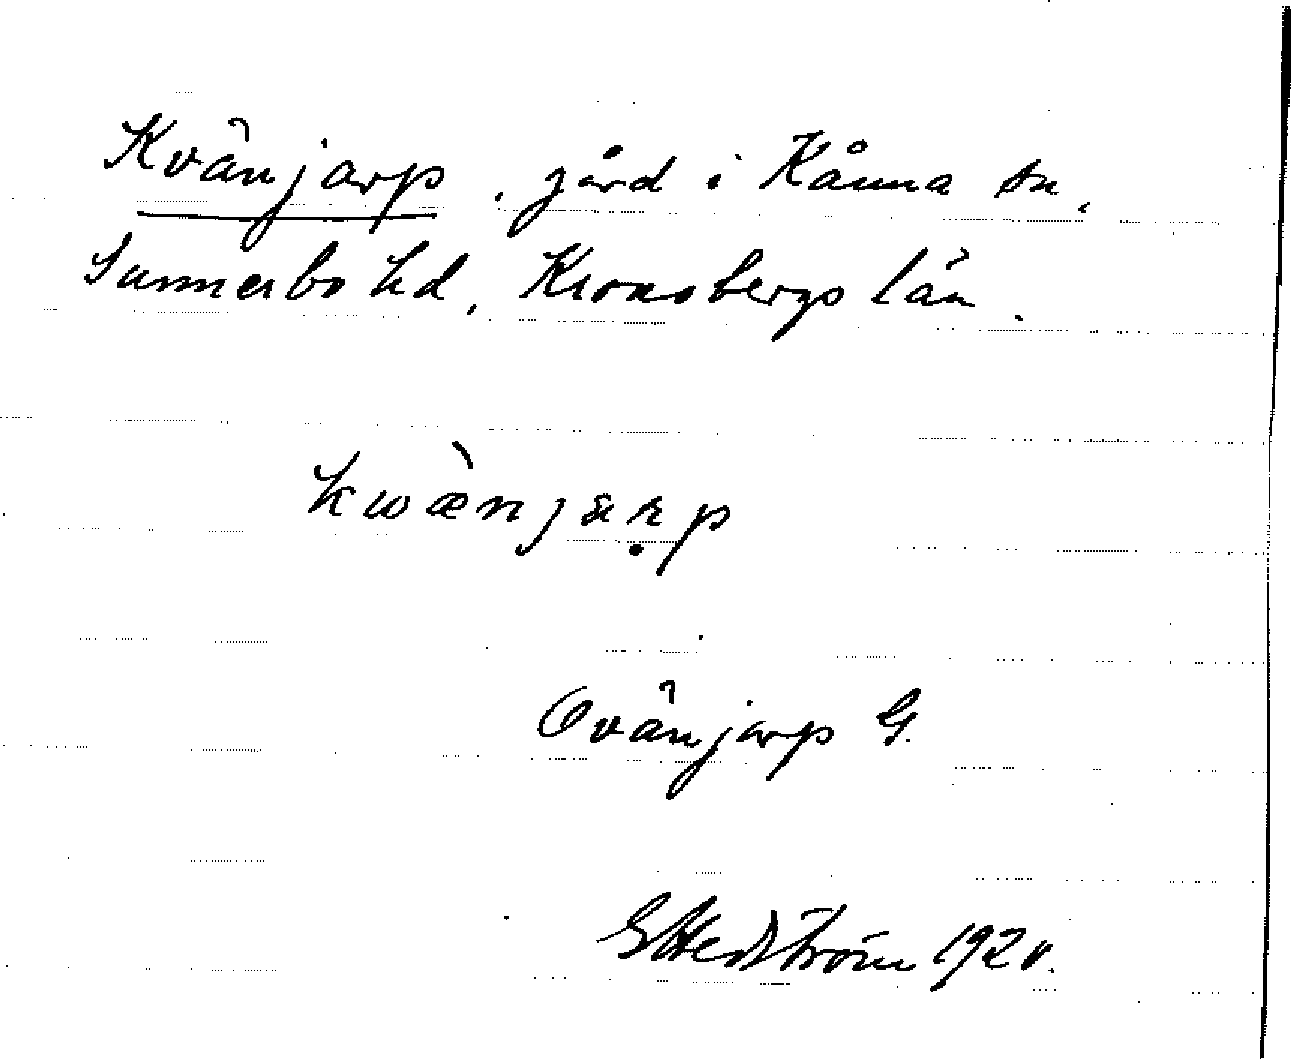 Kvänjarp, gård i Kånna sn,
Sunnerbo hd, Kronobergs län.
kwæ̀njaṛp
Qvänjarp G.
G Hedström 1920.